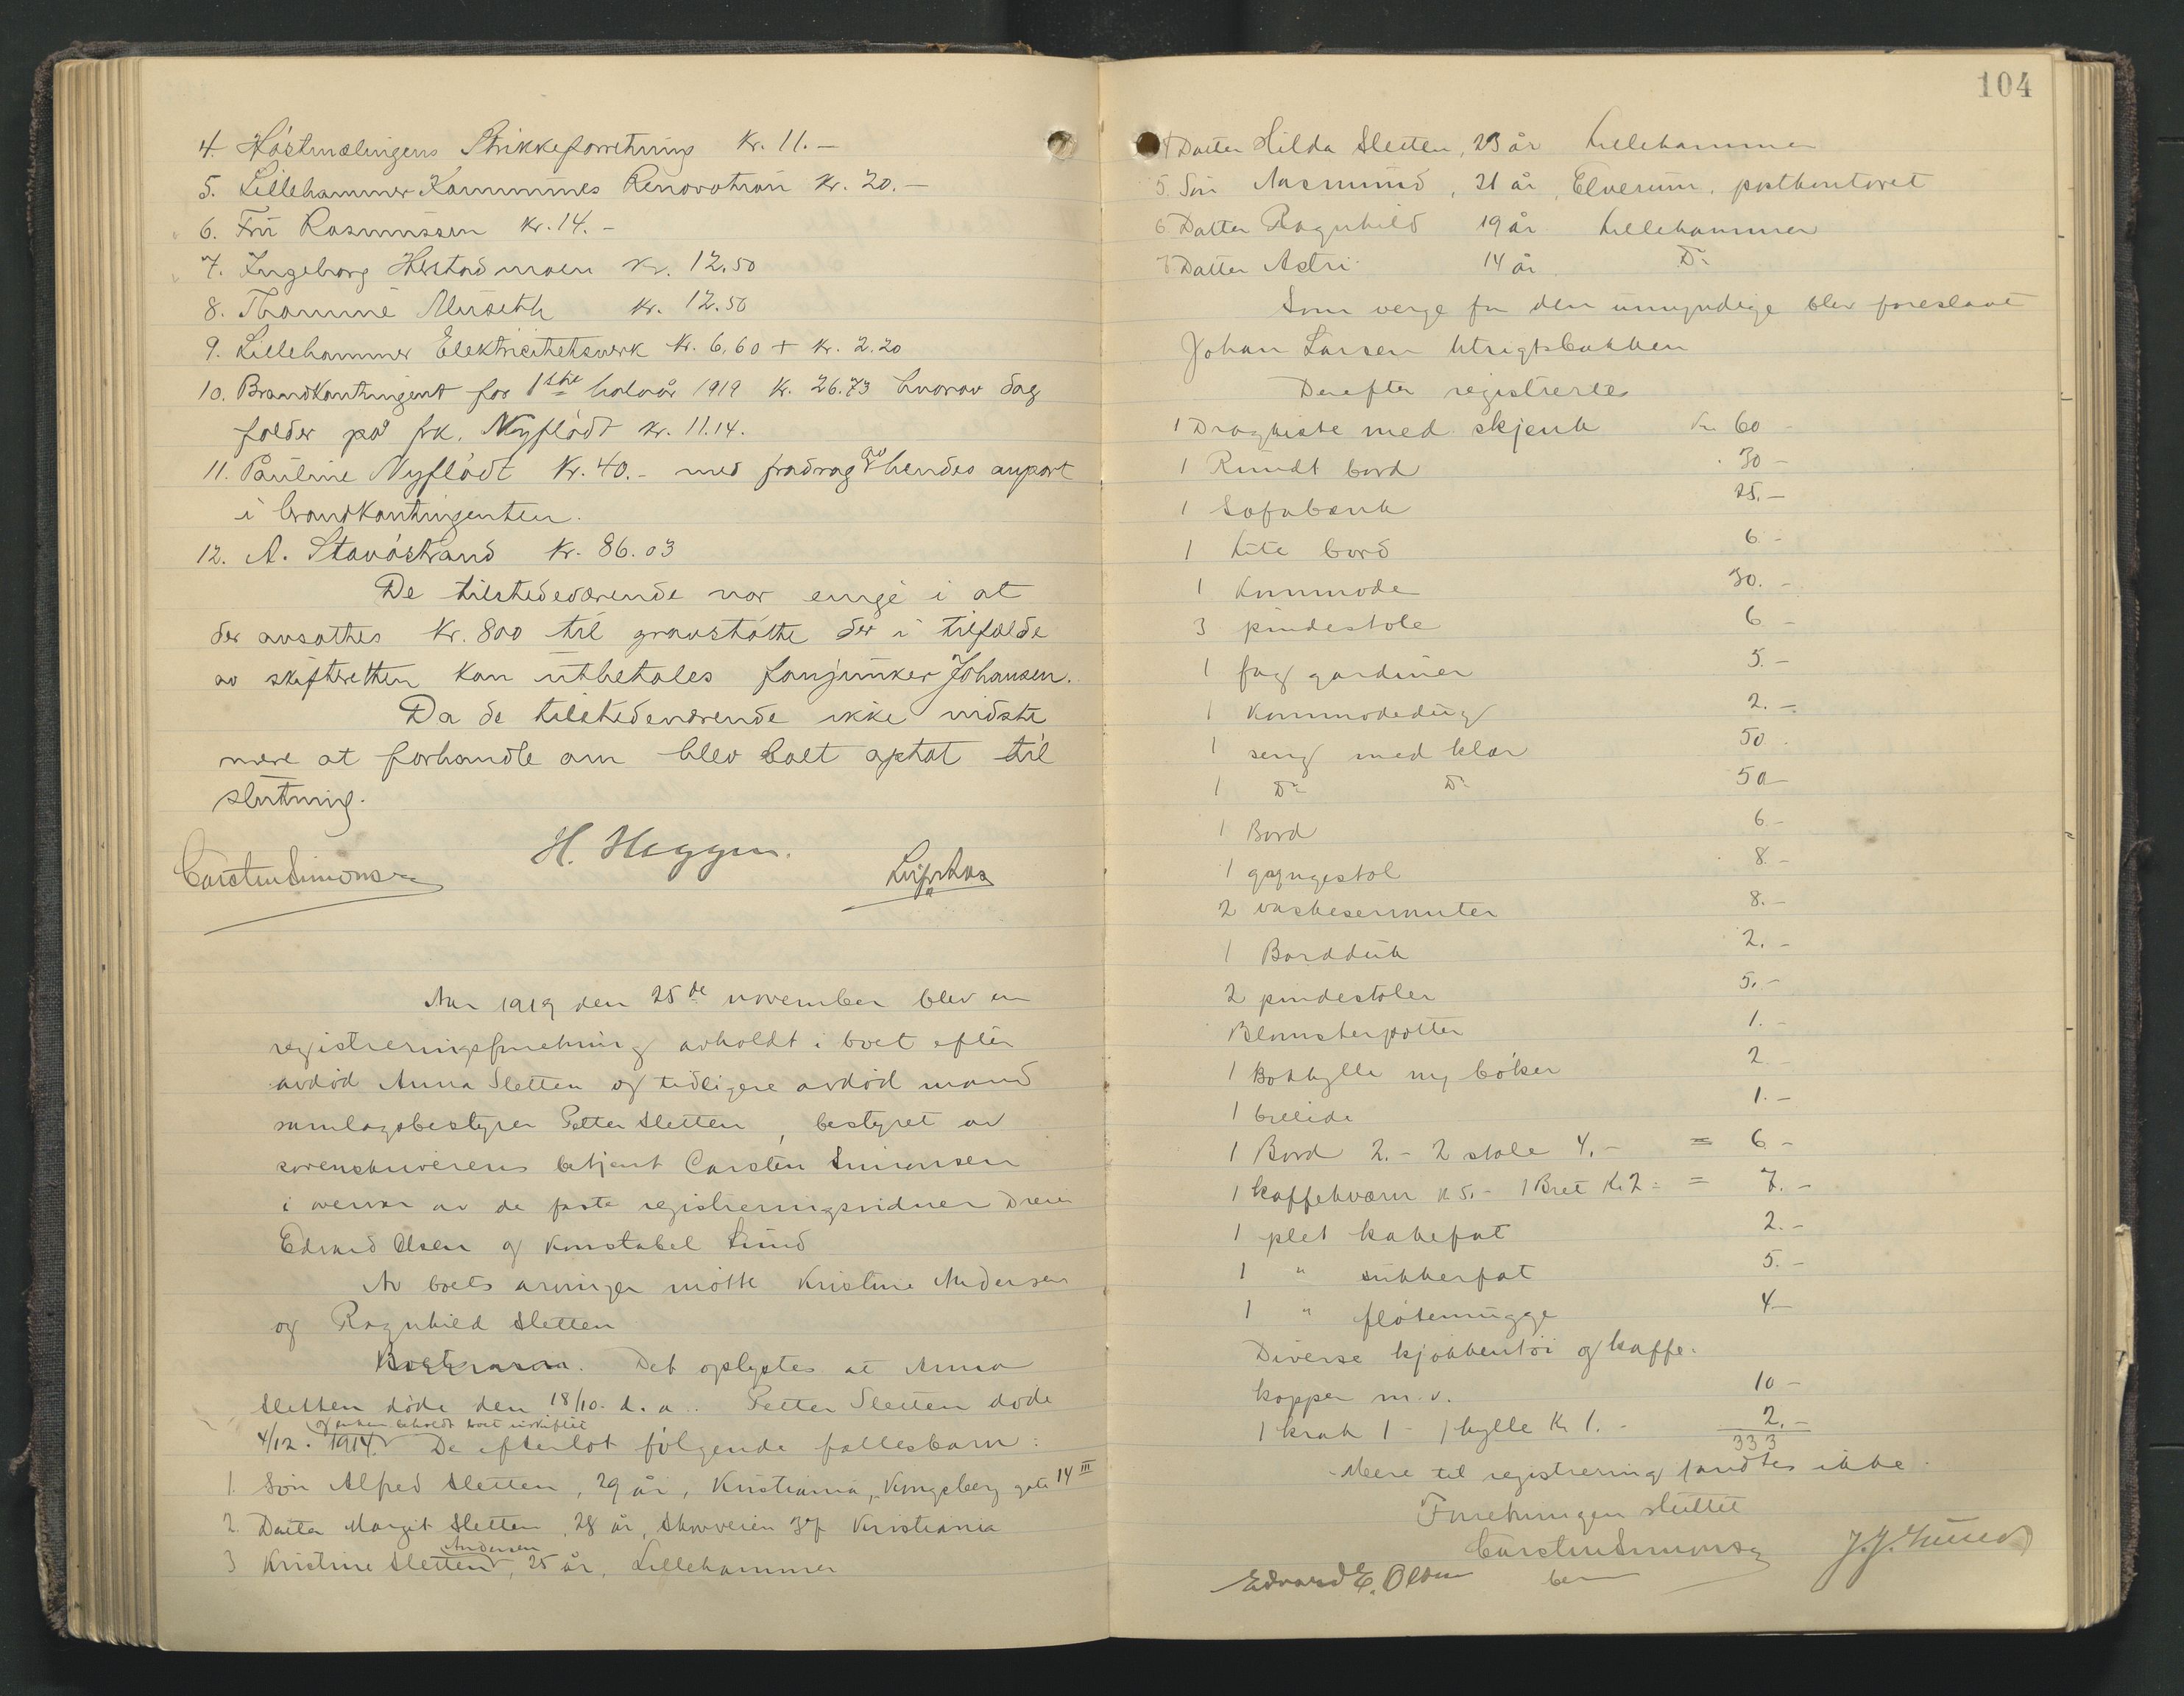 4. Höstmælingens Strikkeforretning Kr. 11.-
5. Lillehammer Kommunes Renovation Kr. 20.-
6. Fru Rasmussen Kr. 14.-
7. Ingeborg Kr. 12.50
8. Kr. 12.50
9. Lillehammer Elektricitetsverk Kr. 6.60 + Kr. 2.20
10. Brandkontingent for 1ste halvår 1919 Kr. 26.73 hvorav dog
falder på frk. Nyflödt Kr. 11.14.
11. Pauline Nyflödt Kr. 40.- med fradrag av hendes anpart
i brandkontingenten.
12. A. Kr. 86.03
De tilstedeværende var enige i at
der avsattes Kr. 800 til gravstötte der i tilfælde
av skifteretten kan utbetales fanjunker Johansen.
Da de tilstedeværende ikke vidste
mere at forhandle om blev boet optat til
slutning.
Carsten Simonsen H. Heggen.
Aar 1919 den 25de november blev en
registreringsforretning avholdt i boet efter
avdöd Anna Sletten og tidligere avdöd mand
samlagsbestyrer Petter Sletten, bestyret av
sorenskriverens betjent Carsten Simonsen
i overvær av de faste registreringsvidner
Edvard Olsen og konstabel Lund
Av boets arvinger mötte Kristine Andersen
og Ragnhild Sletten
Det oplystes at Anna
Sletten döde den 18/10. d. a.. Petter Sletten döde
og enken beholdt boet uskiftet
4/12. 1914. De efterlot fölgende fællesbarn:
1. Sön Alfred Sletten, 29 år, Kristiania, Kongsberg gate 14 III
2. Datter Margit Sletten, 28 år, Skovveien 37 Kristiania
Andersen
3 Kristine Sletten, 25 år, Lillehammer
104
4 Datter Hilda Sletten, 23 år Lillehammer
5. Sön Aasmund, 21 år, Elverum, postkontoret
6 Datter Ragnhild 19 år Lillehammer
7 Datter Astri 14 år Do
Som verge for den umyndige blev foreslaat
Johan Larsen
Derefter registrertes
1 Dragkiste med skjenk Kr 60 -
1 Rundt bord 30 -
1 Sofabænk 25.-
1 Lite bord 6 -
1 Kommode 30. -
3 pindestole 6 -
1 fag gardiner 5.-
1 Kommodedug 2.-
1 seng med klær 50.
1 Do Do 50-
1 Bord 6.-
1 gyngestol 8.-
2 vaskeservanter 8.-
1 Bordduk 2.-
2 pindestoler 5.-
Blomsterpotter 1.-
1 Bokhylle m/ böker 2.-
1 1.-
1 Bord 2.- 2 stole 4.- = 6 -
1 kaffekværn k 5.- 1 Bret Kr 2 = 7.-
1 plet kakefat 2.-
1 " sukkerfat 5.-
1 " flötemugge 4-
Diverse kjökkentöi og kaffe-
kopper m.v. 10 -
1 krak 1 - 1 hylle Kr 1.- 2.-
333
Mere til registrering fandtes ikke.
Forretningen sluttet
Carsten Simonsen J.J. Lund
Edvard E. Olsen